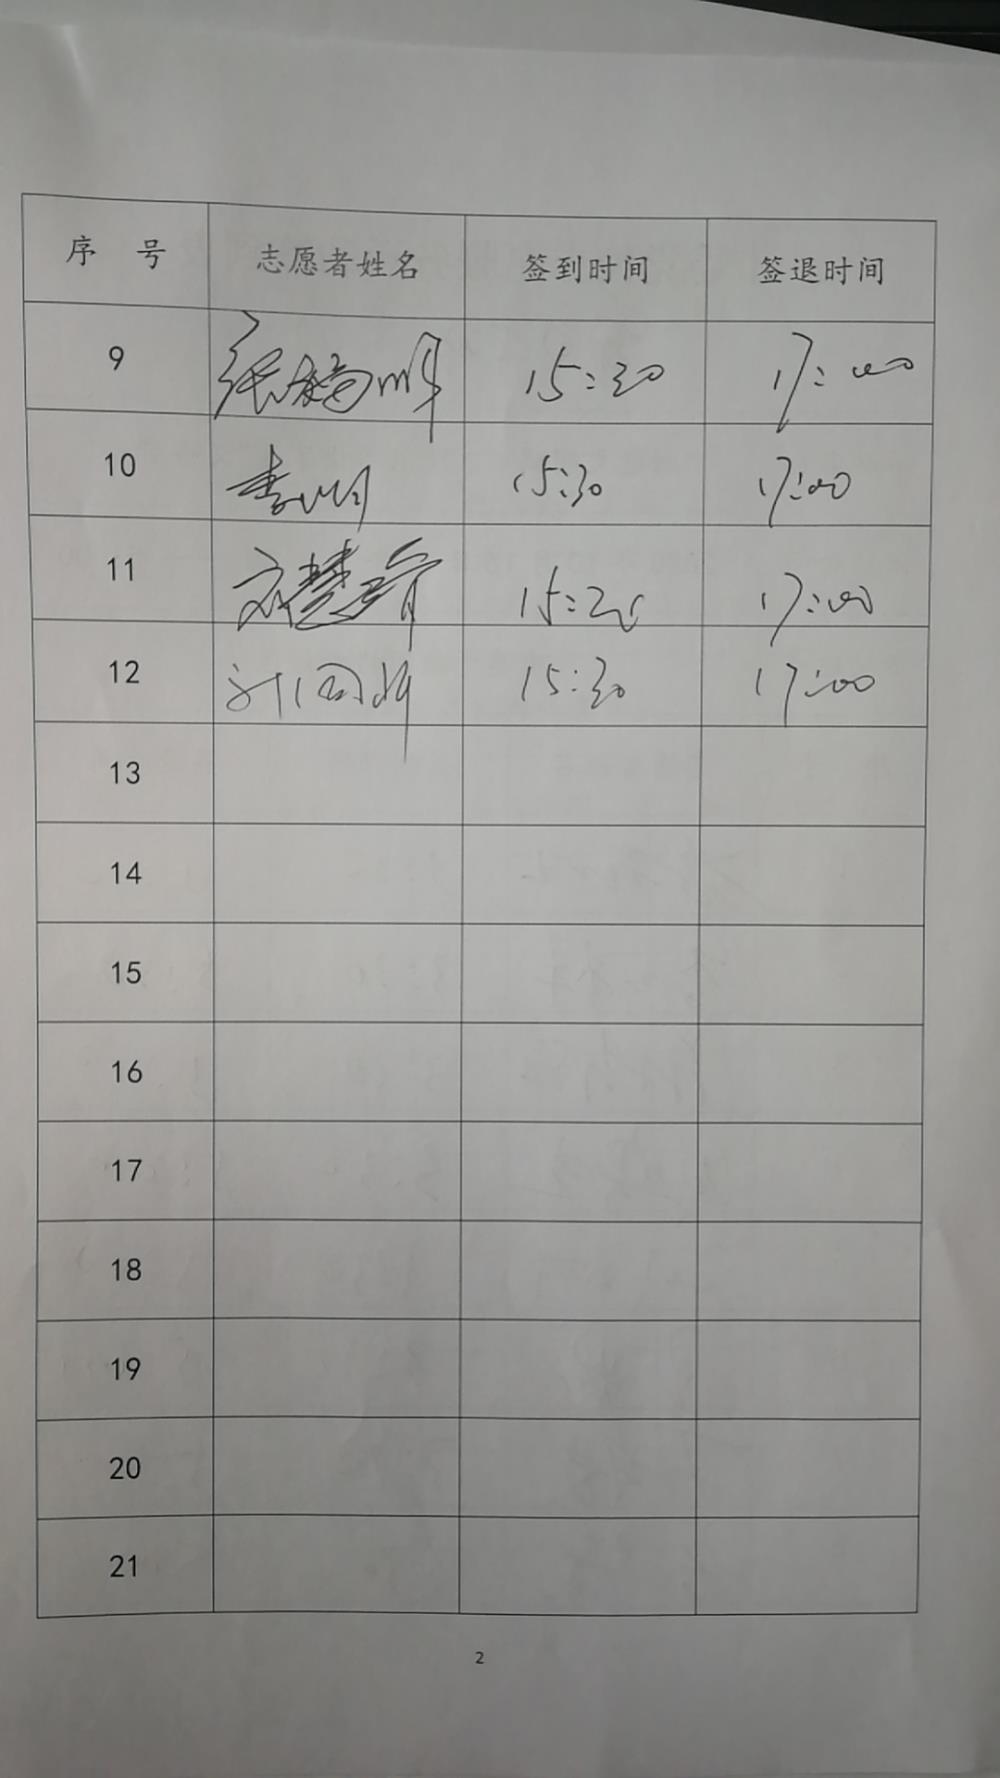 序 号 志愿者姓名 签到时间 签退时间
9 15:30 17:00
10 15:30 17:00
11 刘慧 15:20 17:00
12 15:30 17:00
13
14
15
16
17
18
19
20
21
2